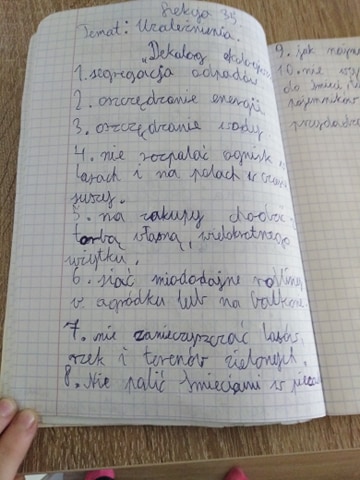 Lekcja 35.
Temat: Uzależnienia.
"Dekalog
1. segregacja odpadów
2. oszczędzanie energii
3. oszczędzanie wody
4. nie rozpalać ognisk
lasach i na polach w
suszy.
5. na zakupy
torbą własną, wielokrotnego
użytku.
6. siać miododajne
w ogródku lub na balkonie.
7. nie zanieczyszczać lasów,
rzek i terenów zielonych.
8. Nie palić śmieciami w
9. jak
10. nie
do